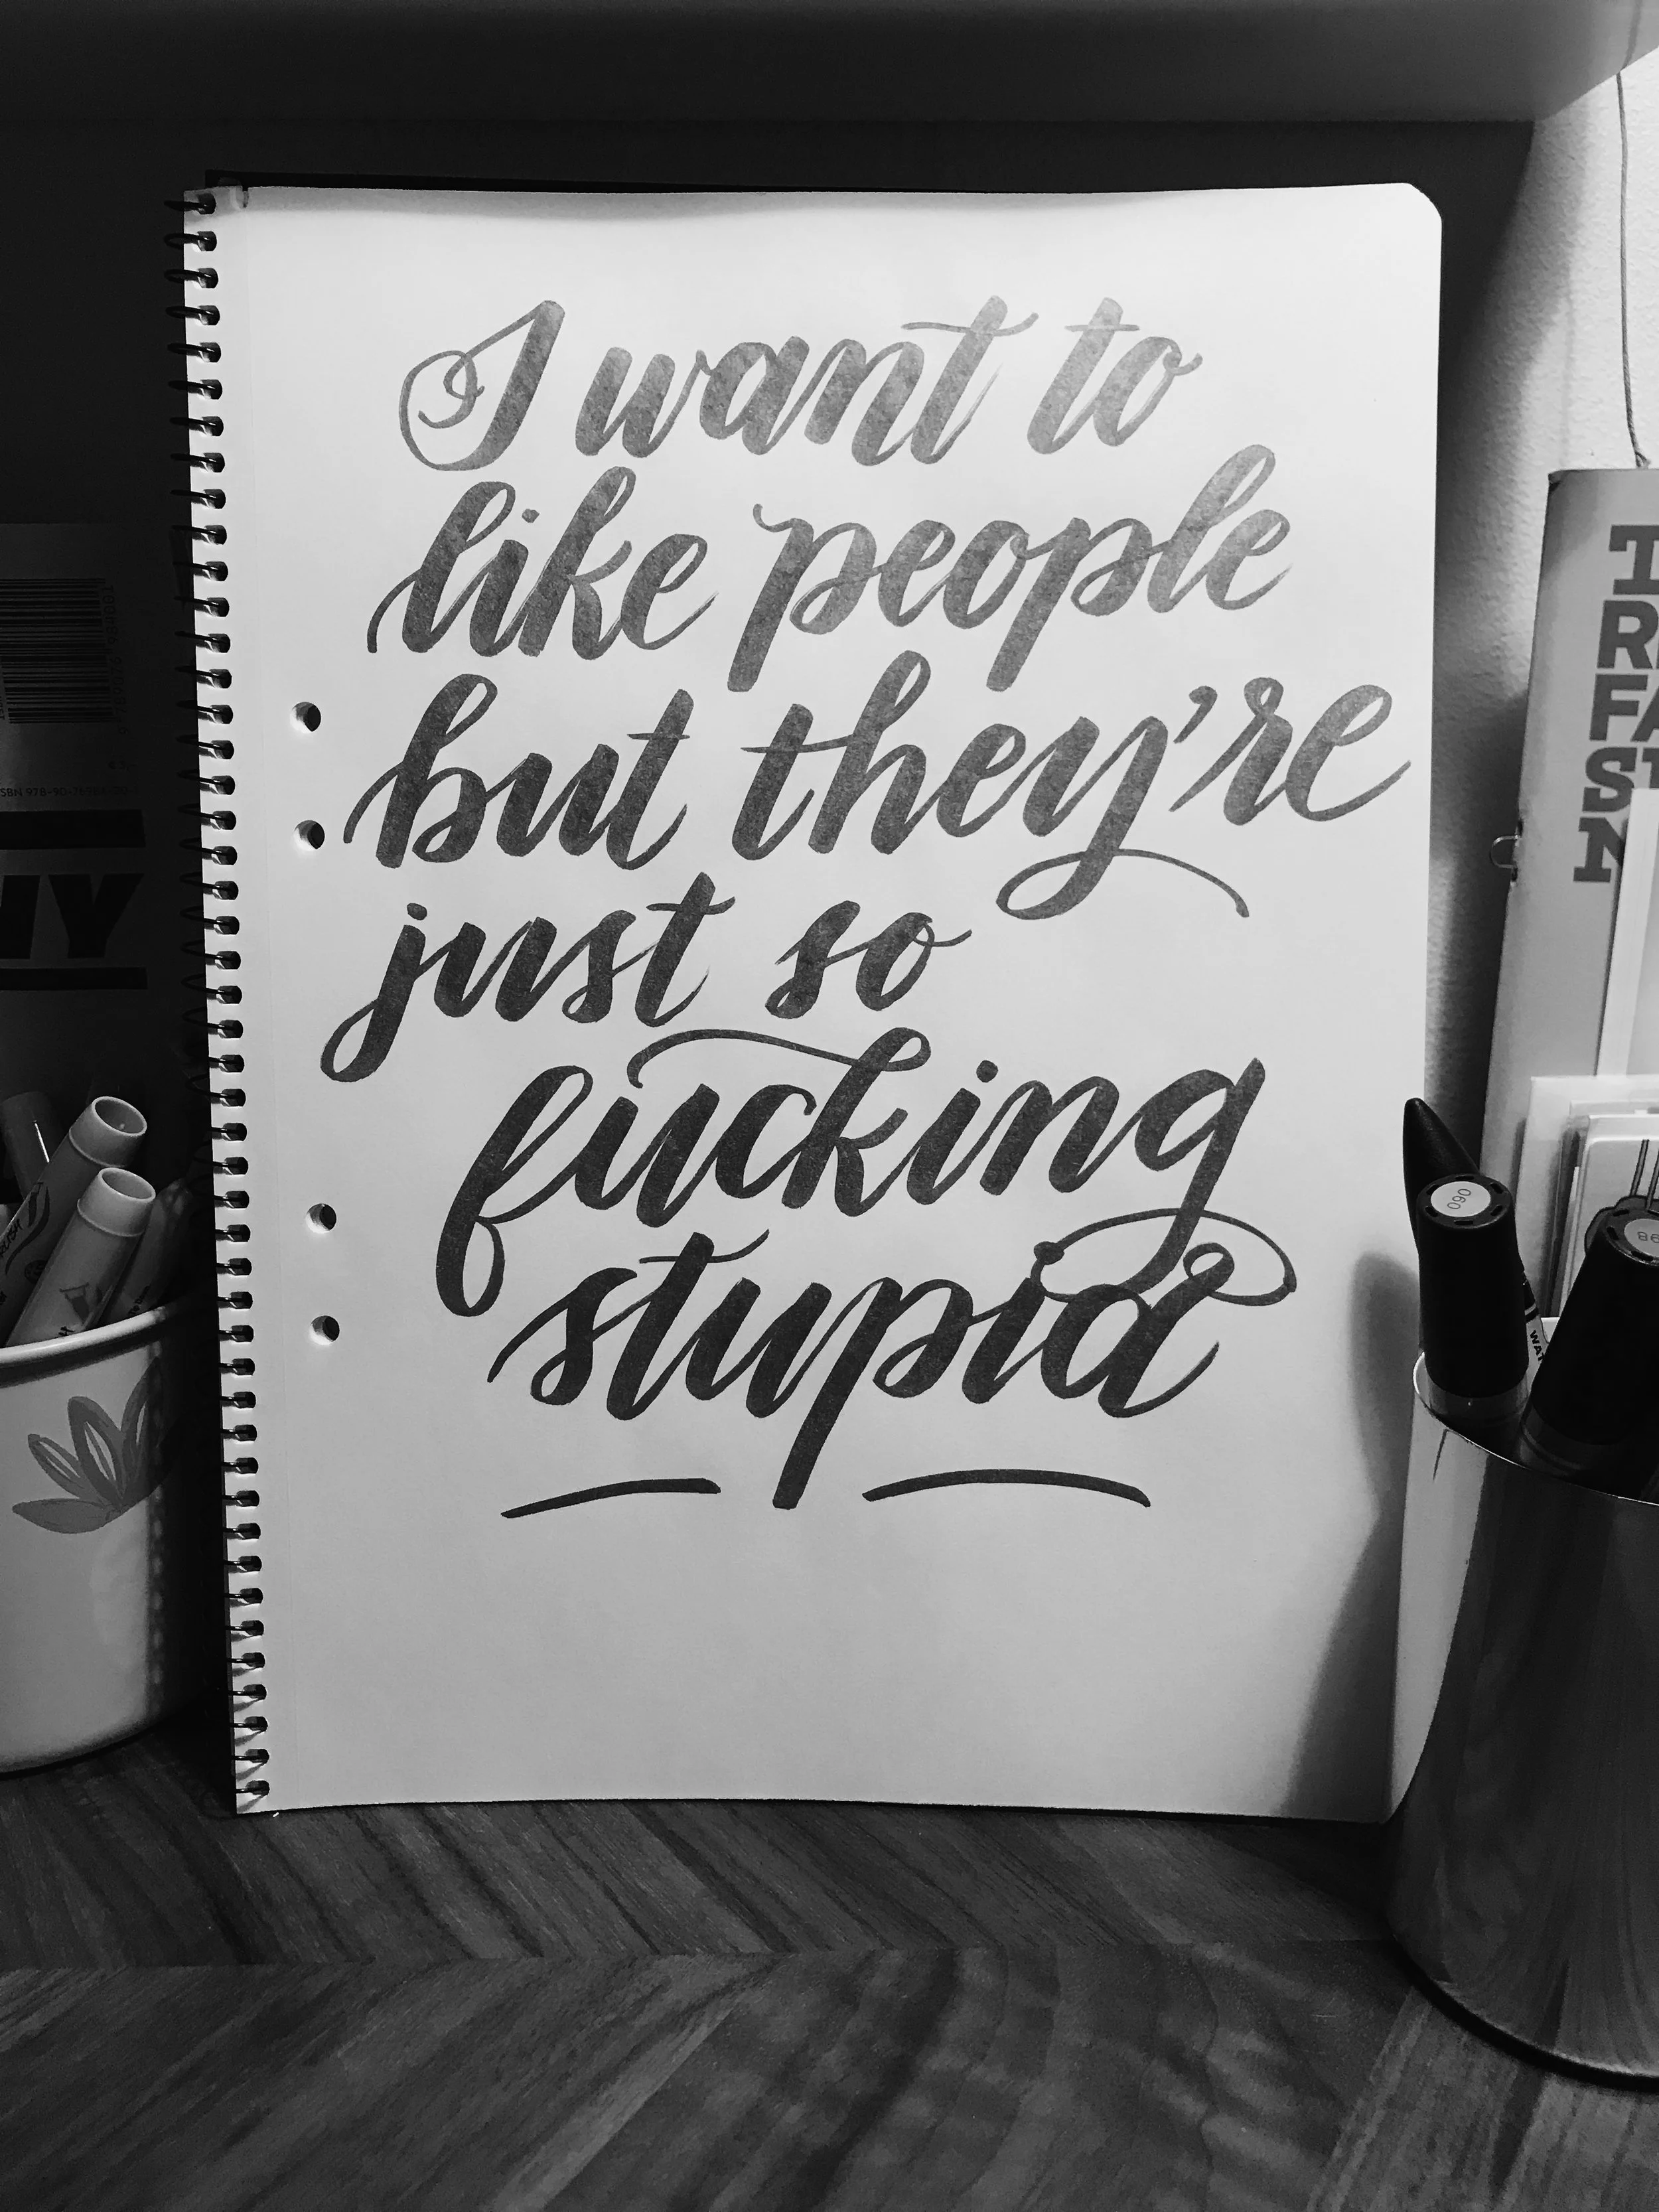 I want to
like people
but they're
just so
fucking
stupid
SBN 978-90-
090